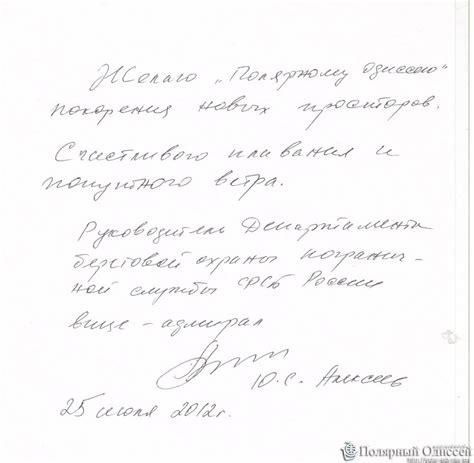 Желаю „Полярному Одиссею"
покорения новых просторов.
Счастливого плавания и
попутного ветра.
Руководитель Департамента
береговой охраны погранич-
ной службы ФСБ России
вице-адмирал
Ю.С. Алексеев
25 июля 2012г.
Полярный Одиссей